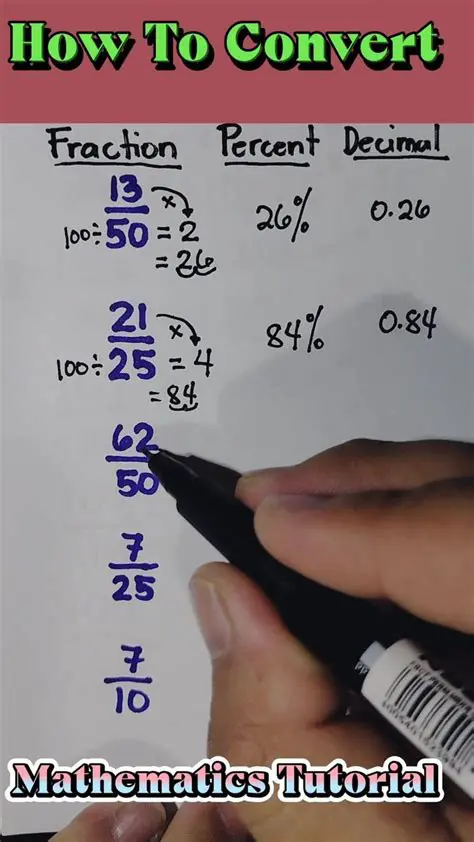 How To Convert
Fraction Percent Decimal
13/50 × 26% 0.26
100÷ = 2
= 26
21/25 × 84% 0.84
100÷ = 4
= 84
62/50
7/25
7/10
Mathematics Tutorial